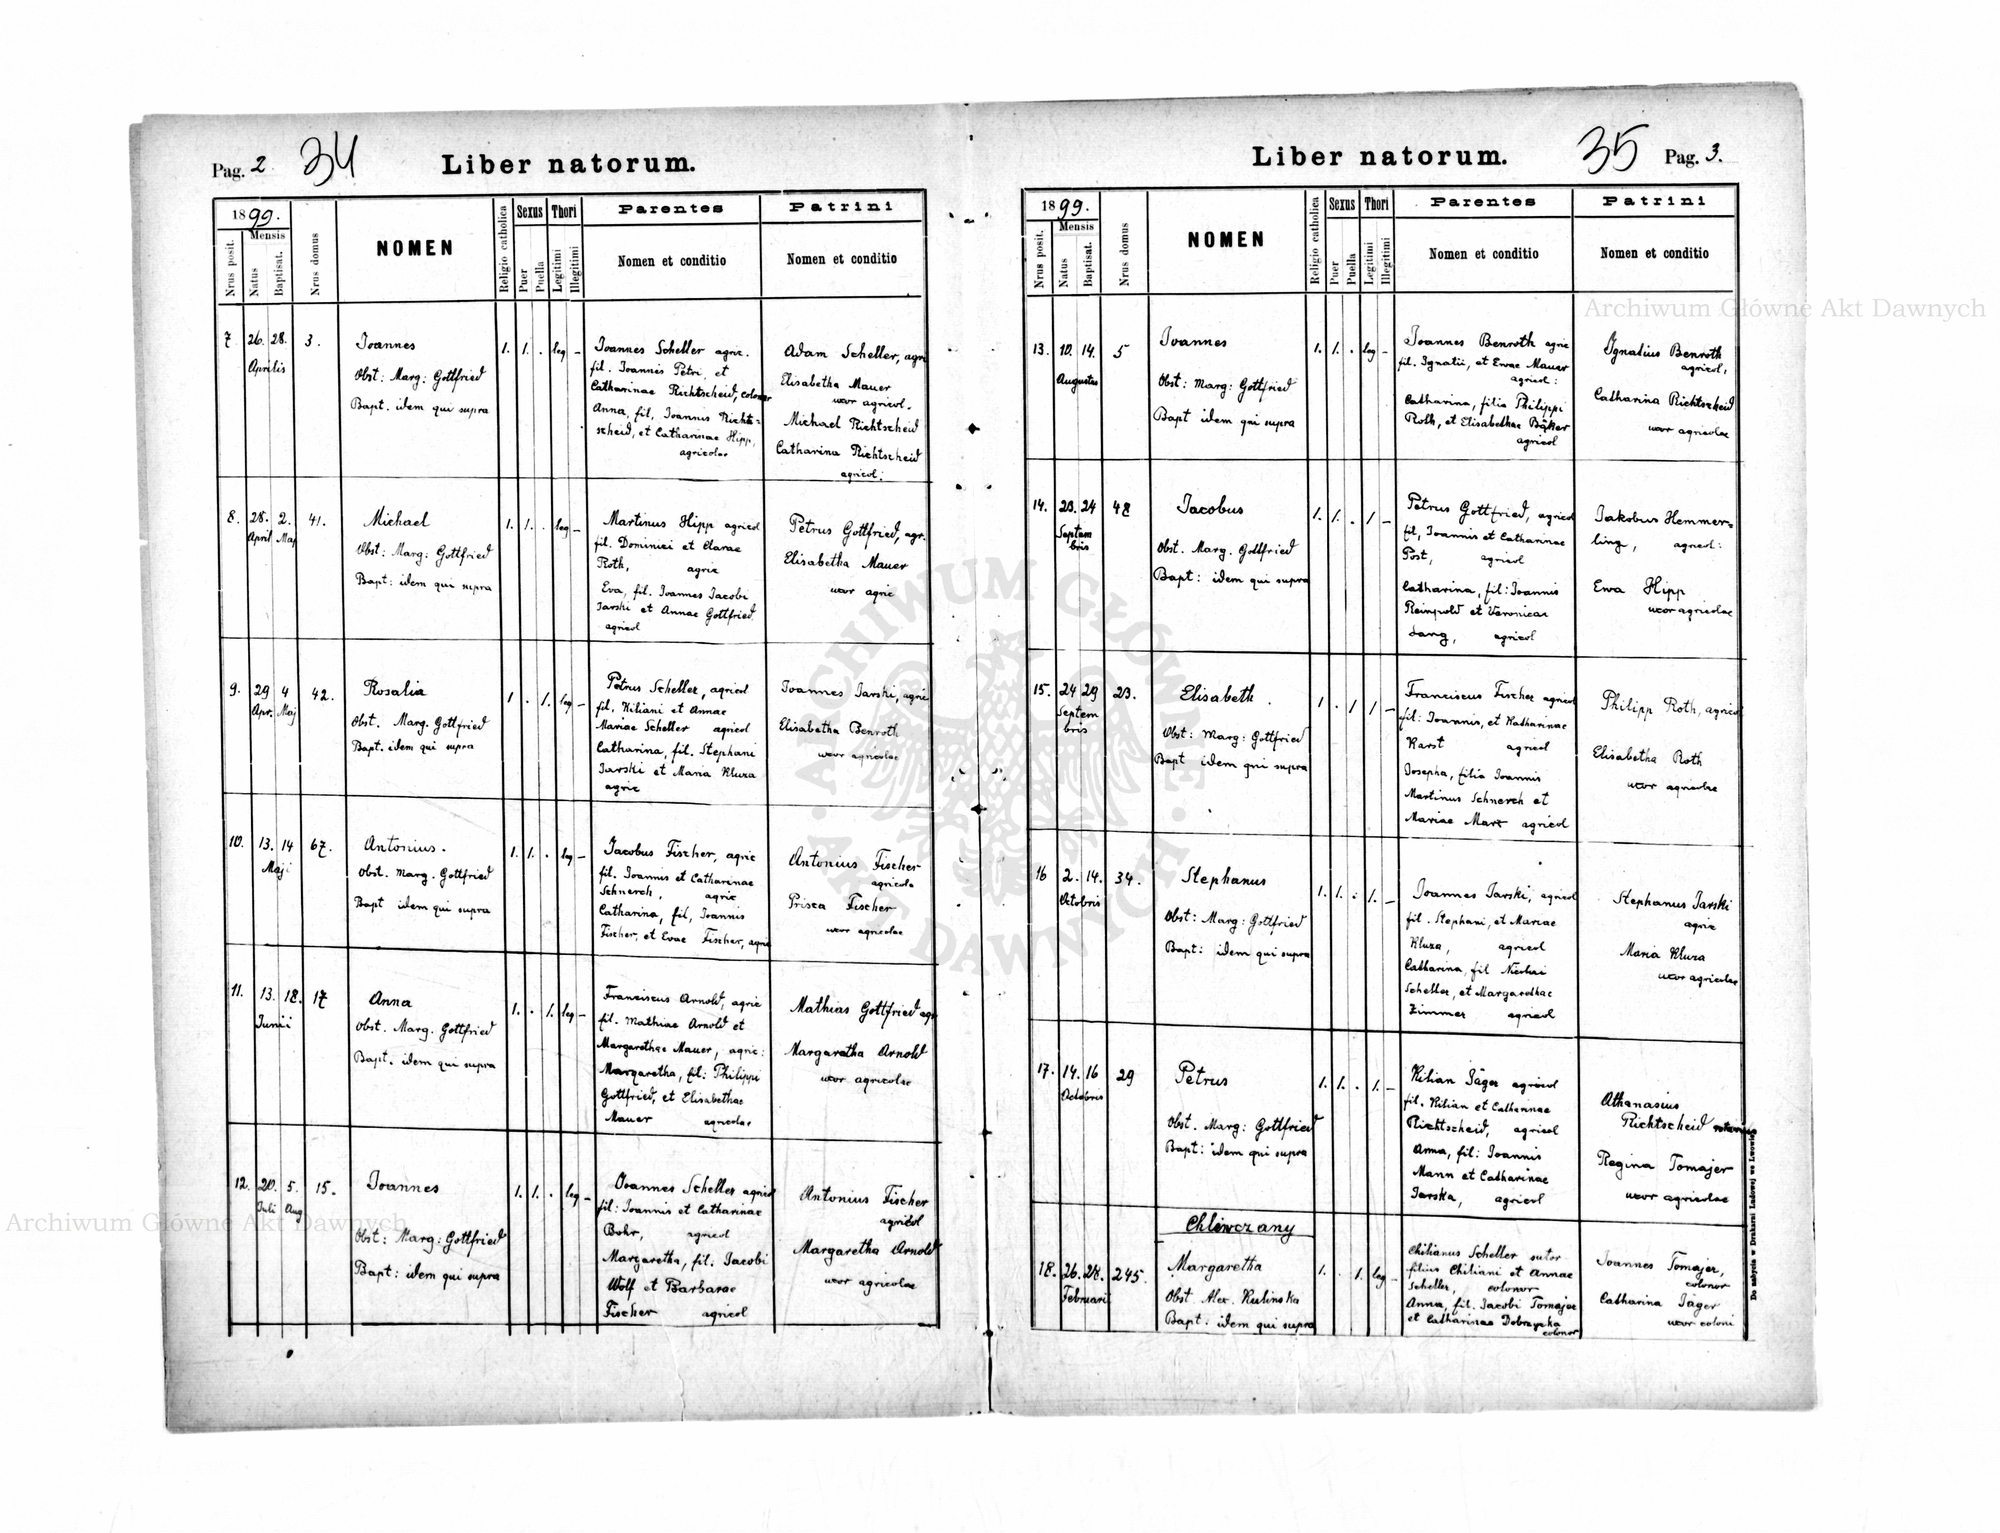 Pag. 2
34
Liber natorum.
1899.
Mensis
Nrus posit.
Natus
Baptisat.
Nrus domus
NOMEN
Religio catholica
Sexus
Puer
Puella
Thori
Legitimi
Illegitimi
Parentes
Nomen et conditio
Patrini
Nomen et conditio
7. 26. 28. 3.
Aprilis
Joannes
Obst: Marg: Gottfried
Bapt. idem qui supra
1. 1. . leg -
Joannes Scheller agric.
fil. Joannis Petri, et
Catharinae Richtscheid, colonor
Anna, fil. Joannis Richt=
scheid, et Catharinae Hipp,
agricolar
Adam Scheller, agri
Elisabetha Mauer
uxor agricol.
Michael Richtscheid
Catharina Richtscheid
agricol:
8. 28. 2. 41.
April Maj
Michael
Obst: Marg: Gottfried
Bapt: idem qui supra
1. 1. . leg -
Martinus Hipp agricol
fil. Dominici et Clarae
Roth, agric
Eva, fil. Joannes Jacobi
Jarski et Annae Gottfried
agricol
Petrus Gottfried, agr.
Elisabetha Mauer
uxor agric
9. 29 4 42.
Apr. Maj
Rosalia
Obst. Marg. Gottfried
Bapt. idem qui supra
1 . 1. leg -
Petrus Scheller, agricol
fil. Kiliani et Annae
Mariae Scheller agricol
Catharina, fil. Stephani
Jarski et Maria Kluza
agric
Joannes Jarski, agric
Elisabetha Benroth
uxor agricolae
10. 13. 14 67.
Maji
Antonius.
Obst. Marg. Gottfried
Bapt idem qui supra
1. 1. . leg -
Jacobus Fischer, agric
fil. Joannis et Catharinae
Schnerch, agric
Catharina, fil, Joannis
Fischer, et Evae Fischer, agric
Antonius Fischer
agricola
Prisca Fischer
uxor agricolae
11. 13. 18. 17
Junii
Anna
Obst. Marg. Gottfried
Bapt. idem qui supra
1. . 1. leg -
Franciscus Arnold, agric
fil. Mathiae Arnold et
Margarethae Mauer, agric:
Margaretha, fil: Philippi
Gottfried, et Elisabethae
Mauer agricolar
Mathias Gottfried agr
Margaretha Arnold
uxor agricolae
12. 20. 5. 15.
Juli Aug
Joannes
Obst: Marg: Gottfried
Bapt: idem qui supra
1. 1. . leg -
Joannes Scheller agricol
fil: Joannis et Catharinae
Bohr, agricol
Margaretha, fil. Jacobi
Wolf et Barbarae
Fischer agricol
Antonius Fischer
agricol
Margaretha Arnold
uxor agricolae
Liber natorum.
35
Pag. 3.
1899.
Mensis
Nrus posit.
Natus
Baptisat.
Nrus domus
NOMEN
Religio catholica
Sexus
Puer
Puella
Thori
Legitimi
Illegitimi
Parentes
Nomen et conditio
Patrini
Nomen et conditio
13. 10. 14. 5
Augustus
Joannes
Obst: Marg: Gottfried
Bapt idem qui supra
1. 1. . leg -
Joannes Benroth agric
fil. Ignatii, et Evae Mauer
agricol:
Catharina, filia Philippi
Roth, et Elisabethae Bäker
agricol
Ignatius Benroth
agricol,
Catharina Richtscheid
uxor agricolae
14. 23. 24 48
Septem
bris
Jacobus
Obst. Marg. Gottfried
Bapt: idem qui supra
1. 1. . 1 -
Petrus Gottfried, agricol
fil, Joannis et Catharinae
Post, agricol
Catharina, fil: Joannis
Reinpold et Veronicae
Lang, agricol
Jakobus Hemmer=
ling, agricol:
Ewa Hipp
uxor agricolae
15. 24 29 23.
Septem
bris
Elisabeth.
Obst: Marg: Gottfried
Bapt idem qui supra
1 . 1 1 -
Franciscus Fischer agricol
fil: Joannis, et Katharinae
Karst agricol
Josepha, filia Joannis
Martinus Schnerch et
Mariae Marx agricol
Philipp Roth, agricol
Elisabetha Roth
uxor agricolae
16 2. 14. 34.
Octobris
Stephanus
Obst: Marg: Gottfried
Bapt: idem qui supra
1. 1. : 1. -
Joannes Jarski, agricol
fil. Stephani, et Mariae
Kluza, agricol
Catharina, fil Nicolai
Scheller, et Margarethae
Zimmer agricol
Stephanus Jarski
agric
Maria Kluza
uxor agricolae
17. 14. 16 29
Octobris
Petrus
Obst. Marg: Gottfried
Bapt: idem qui supra
1. 1. . 1. -
Kilian Jäger agricol
fil. Kilian et Catharinae
Richtscheid, agricol
Anna, fil: Joannis
Mann et Catharinae
Jarska, agricol
Athanasius
Richtscheid
Regina Tomajer
uxor agricolae
Chliwczany
18. 26. 28. 245.
Februarii
Margaretha
Obst. Alex. Kulinska
Bapt. idem qui supra
1. . 1. leg -
Chilianus Scheller sutor
filius Chiliani et Annae
Scheller, colonor
Anna, fil. Jacobi Tomajer
et Catharinae Dobrzycka
colonor
Joannes Tomajer,
colonor
Catharina Jäger
uxor coloni
Do nabycia w Drukarni Ludowej we Lwowie
Archiwum Główne Akt Dawnych
Archiwum Główne Akt Dawnych
ARCHIWUM GŁÓWNE AKT DAWNYCH